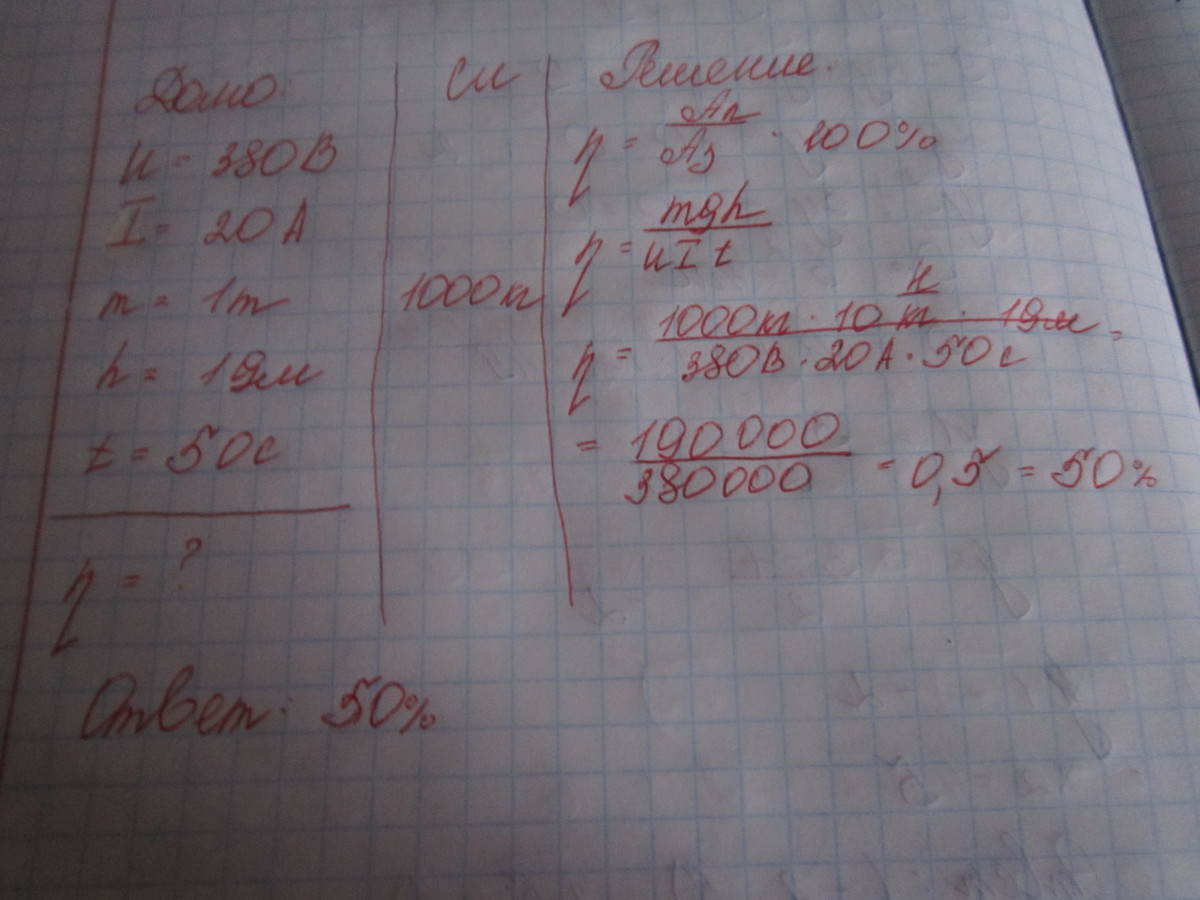 Дано:
U = 380В
I = 20А
m = 1т
h = 19м
t = 50с
η = ?
СИ
1000кг
Решение.
η = Aп / Aз · 100%
η = mgh / UIt
η = 1000кг · 10 Н/кг · 19м / 380В · 20А · 50с =
= 190000 / 380000 = 0,5 = 50%
Ответ: 50%